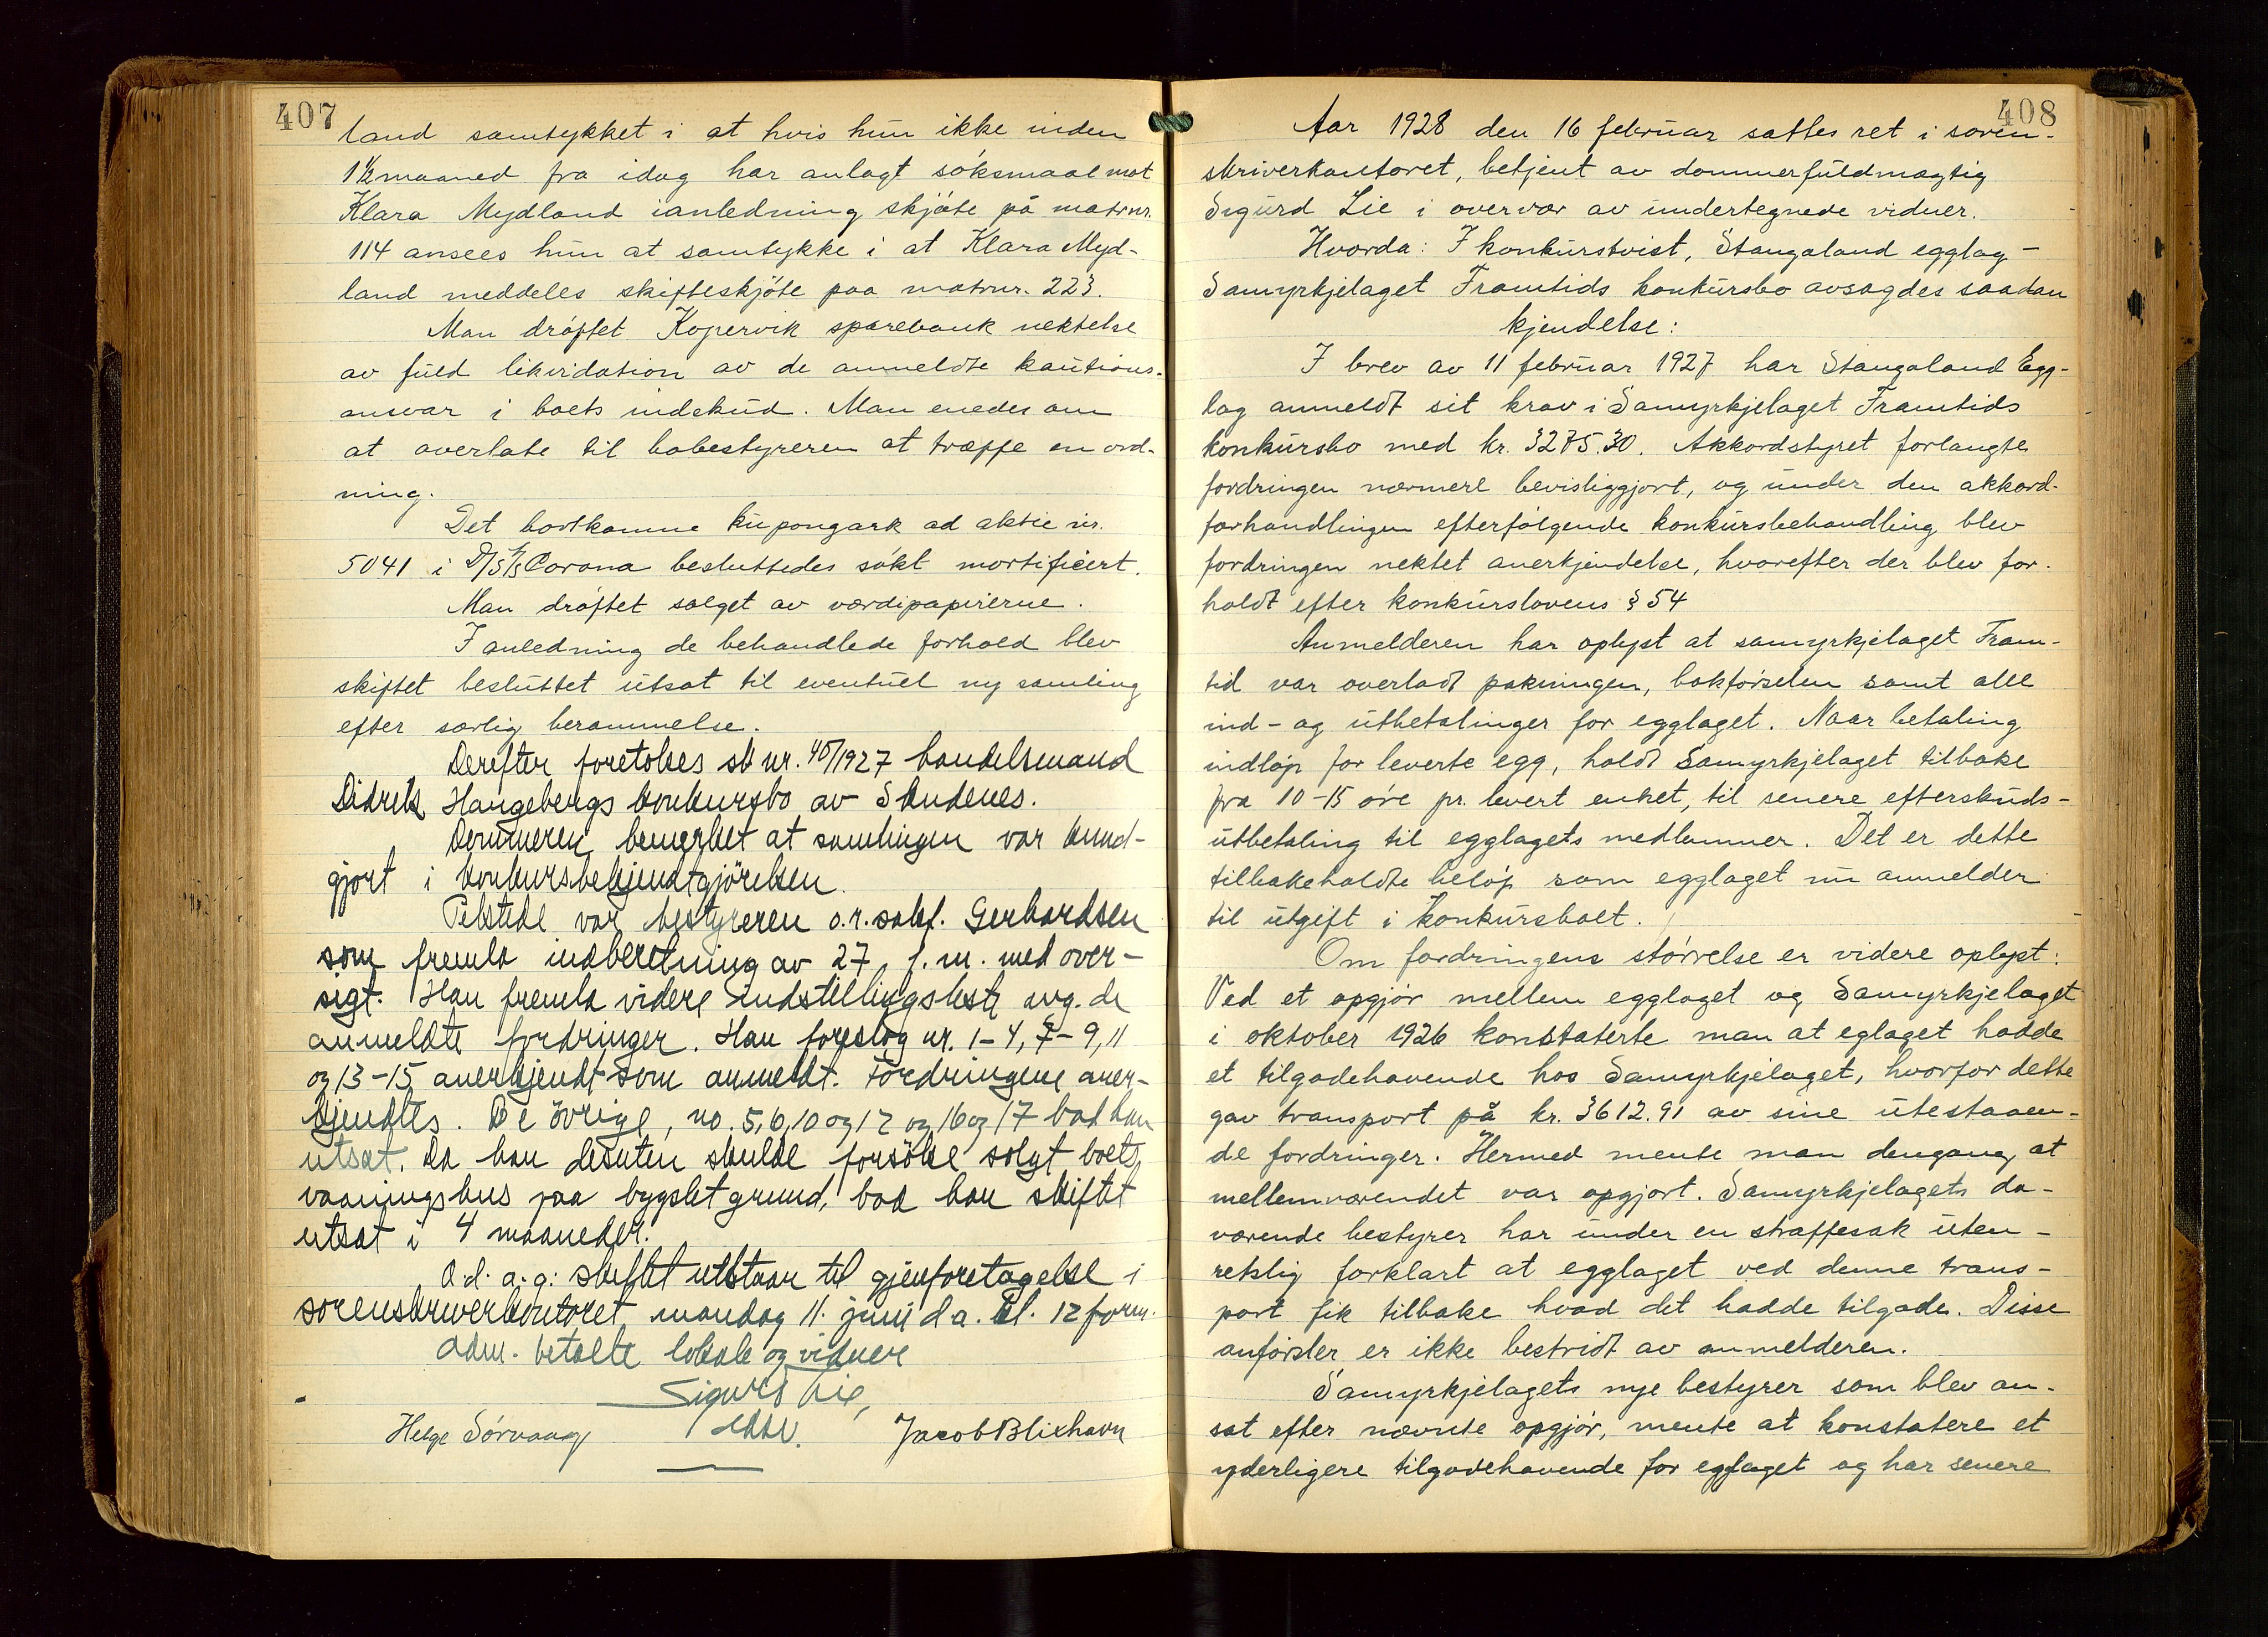 407
land samtykket i at hvis hun ikke inden
1½ maaned fra idag har anlagt söksmaal mot
Klara Mydland ianledning skjöte på matrnr.
114 ansees hun at samtykke i at Klara Myd-
land meddeles skifteskjöte paa matrnr. 223.
Man dröftet Kopervik sparebank nektelse
av fuld likvidation av de anmeldte kautions-
ansvar i boets indskud. Man enedes om
at overlate til bobestyreren at træffe en ord-
ning.
Det bortkomne kupongark ad aktie nr.
5041 i D/S A/S Corona besluttedes sökt mortificert.
Man dröftet salget av værdipapirerne.
I anledning de behandlede forhold blev
skiftet besluttet utsat til eventuel ny samling
efter særlig berammelse.
Derefter foretokes sk nr. 40/1927 handelsmand
Didrik Haugebergs konkursbo av Skudenes.
Dommeren bemerket at samlingen var kund-
gjort i konkursbekjendtgjörelsen.
Tilstede var bestyreren o.r.sakf. Gerhardsen
som fremla indberetning av 27. f.m. med over-
sigt. Han fremla videre indstillingsliste ang. de
anmeldte fordringer. Han foreslog nr. 1-4, 7-9, 11
og 13-15 anerkjendt som anmeldt. Fordringene aner-
kjendtes. De övrige, no. 5, 6, 10 og 12 og 16 og 17 bad han
utsat. Da han desuten skulde forsöke solgt boets
vaaningshus paa bygslet grund, bad han skiftet
utsat i 4 maaneder.
O.d.a.g: skiftet utstaar til gjenforetagelse i
sorenskriverkontoret mandag 11. juni d.a. kl. 12 form.
Adm. betalte lokale og vidner
Sigurd Lie,
Helge Sörvaag Jacob Blixhavn
408
Aar 1928 den 16 februar sattes ret i soren-
skriverkontoret, betjent av dommerfuldmægtig
Sigurd Lie i overvær av undertegnede vidner.
Hvorda: I konkurstvist, Stangaland egglag -
Samyrkjelaget Framtids konkursbo avsagdes saadan
kjendelse:
I brev av 11 februar 1927 har Stangaland Egg-
lag anmeldt sit krav i Samyrkjelaget Framtids
konkursbo med kr. 3275.30. Akkordstyret forlangte
fordringen nærmere bevisliggjort, og under den akkord-
forhandlingen efterfölgende konkursbehandling blev
fordringen nektet anerkjendelse, hvorefter der blev for-
holdt efter konkurslovens § 54
Anmelderen har oplyst at samyrkjelaget Fram-
tid var overladt pakningen, bokförselen samt alle
ind- og utbetalinger for egglaget. Naar betaling
indlöp for leverte egg, holdt Samyrkjelaget tilbake
fra 10-15 öre pr. levert enhet, til senere efterskuds-
utbetaling til egglagets medlemmer. Det er dette
tilbakeholdte belöp som egglaget nu anmelder
til utgift i konkursboet.
Om fordringens störrelse er videre oplyst:
Ved et opgjör mellem egglaget og Samyrkjelaget
i oktober 1926 konstaterte man at eglaget hadde
et tilgodehavende hos Samyrkjelaget, hvorfor dette
gav transport på kr. 3612.91 av sine utestaaen-
de fordringer. Hermed mente man dengang at
mellemværendet var opgjort. Samyrkjelagets da-
værende bestyrer har under en straffesak uten-
retslig forklart at egglaget ved denne trans-
port fik tilbake hvad det hadde tilgode. Disse
anförsler er ikke bestridt av anmelderen.
Samyrkjelagets nye bestyrer som blev an-
sat efter nævnte opgjör, mente at konstatere et
yderligere tilgodehavende for egglaget og har senere